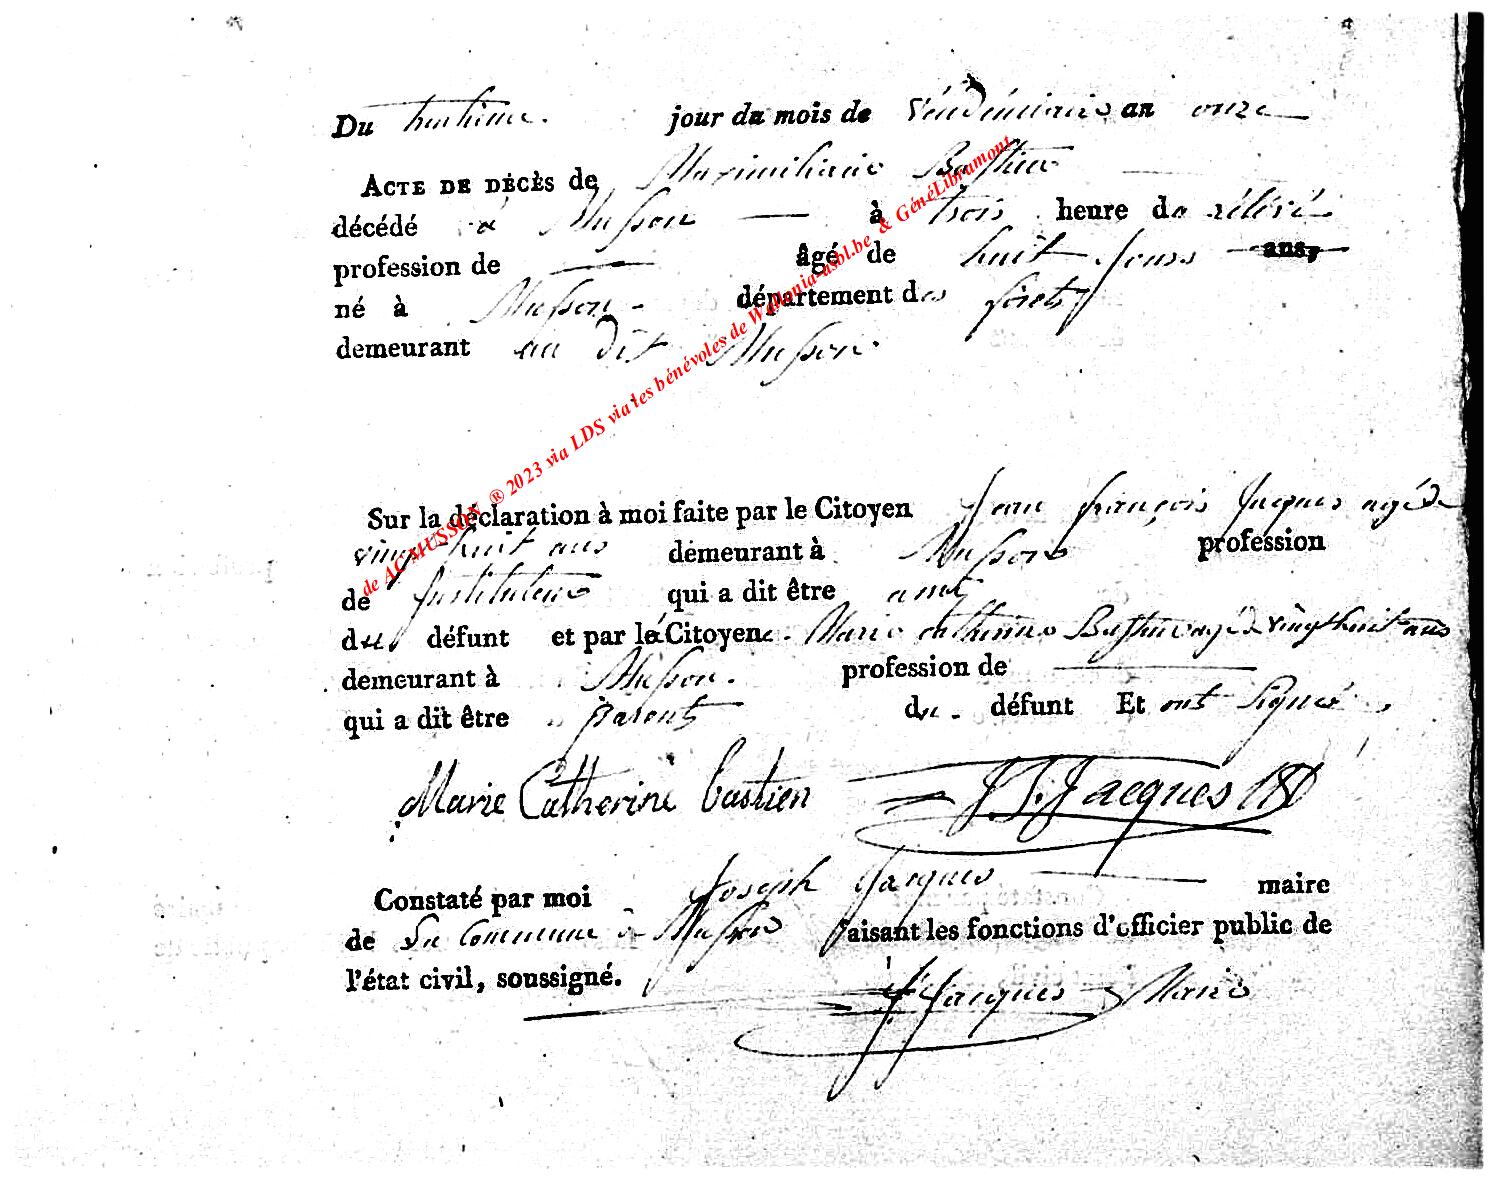 Du huitieme. jour du mois de Vendémiaire an onze
ACTE DE DÉCÈS de Maximiliane Basthien
décédé à Musson à trois heure de rélevé
profession de âgé de huit jours ans,
né à Musson département des forets
demeurant au dit Musson
Sur la déclaration à moi faite par le Citoyen Jean françois Jacques agé de
vingt huit ans demeurant à Musson profession
de Instituteur qui a dit être amy
du défunt et par la Citoyene Marie catherine Basthien agé de vingt huit ans
demeurant à Musson. profession de
qui a dit être parent du défunt Et ont Signé
Marie Catherine bastien J f. Jacques
Constaté par moi Joseph Jacques maire
de La Commune de Musson faisant les fonctions d'officier public de
l'état civil, soussigné.
J Jacques Maire
de AC MUSSON ® 2023 via LDS via les bénévoles de Wallonia-asbl.be & GénéLibramont